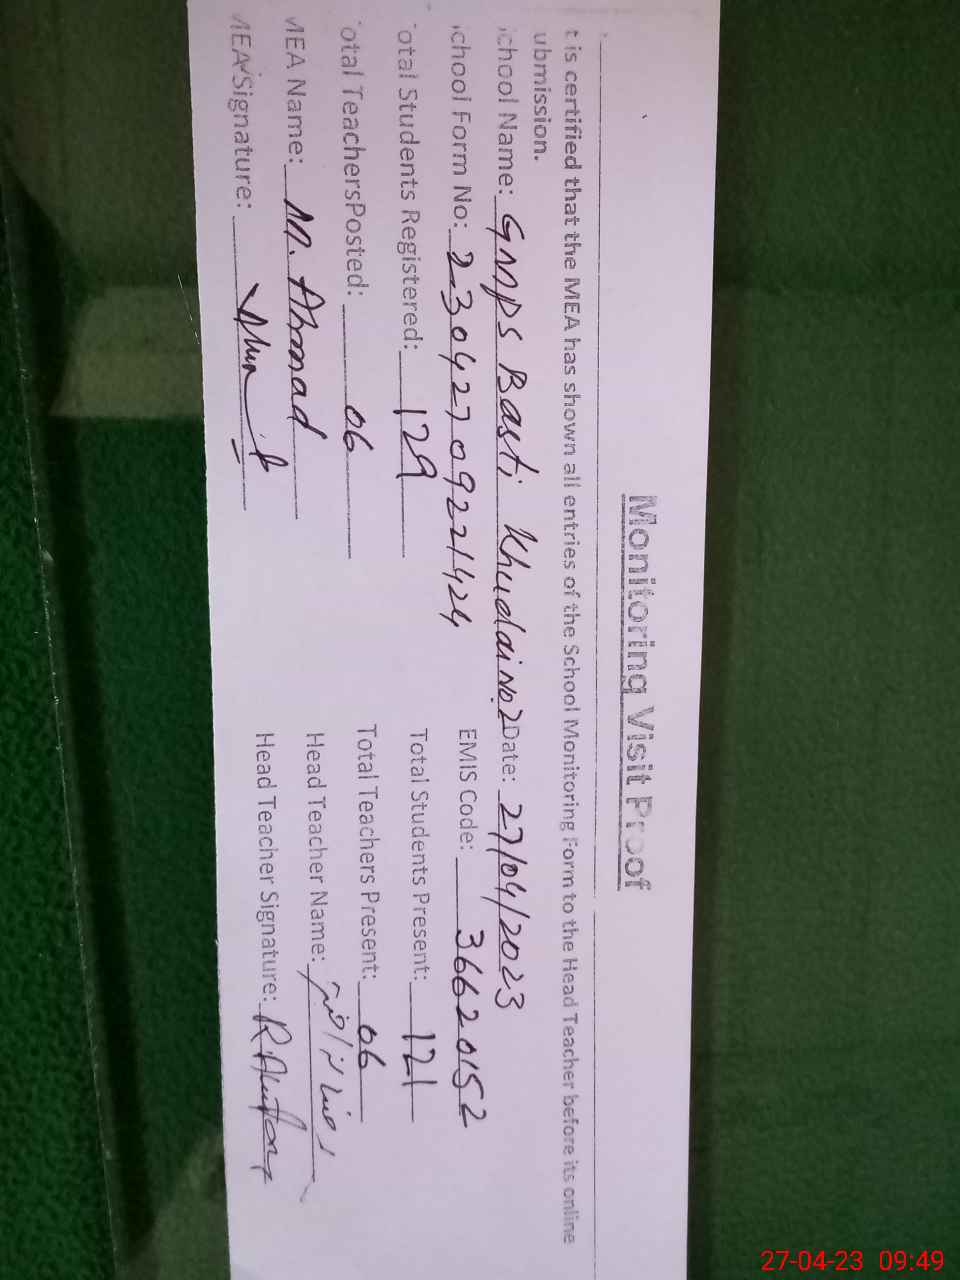 Monitoring Visit Proof
t is certified that the MEA has shown all entries of the School Monitoring Form to the Head Teacher before its online
ubmission.
chool Name: GMPS Basti Khudai No.2 Date: 27/04/2023
chool Form No: 23042709221424 EMIS Code: 36620152
otal Students Registered: 129 Total Students Present: 121
otal TeachersPosted: 06 Total Teachers Present: 06
MEA Name: M. Ahmad Head Teacher Name:
MEA Signature: Head Teacher Signature:
27-04-23 09:49